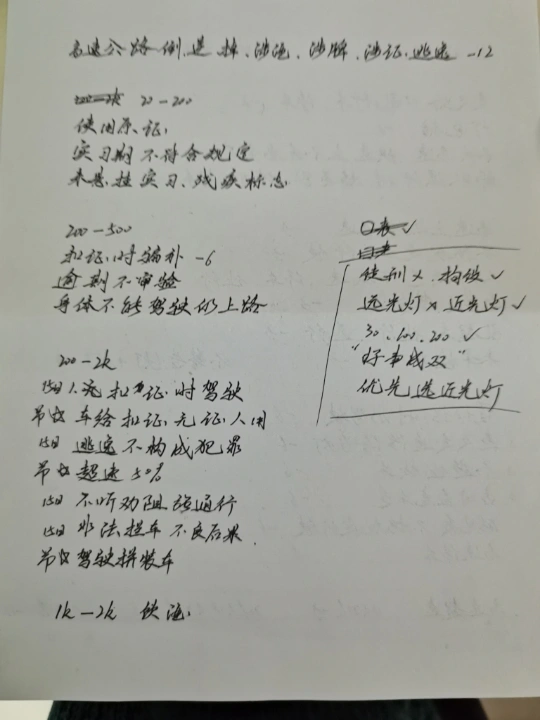 高速公路倒、逆、掉、涉酒、涉牌、涉证、逃逸 -12
20-200
使用原证.
实习期不符合规定
未悬挂实习、残疾标志
200-500
扣证时骗补 -6
逾期不审验
身体不能驾驶仍上路
200-2k
15日 1、无扣证时驾驶
吊 车给扣证、无证人用
15日 逃逸不构成犯罪
吊 超速50%
15日 不听劝阻强通行
15日 非法拦车不良后果
吊 驾驶拼装车
1k-2k 饮酒.
徒刑 × 拘役 ✓
远光灯 × 近光灯 ✓
30、100、200 ✓
"好事成双"
优先选近光灯